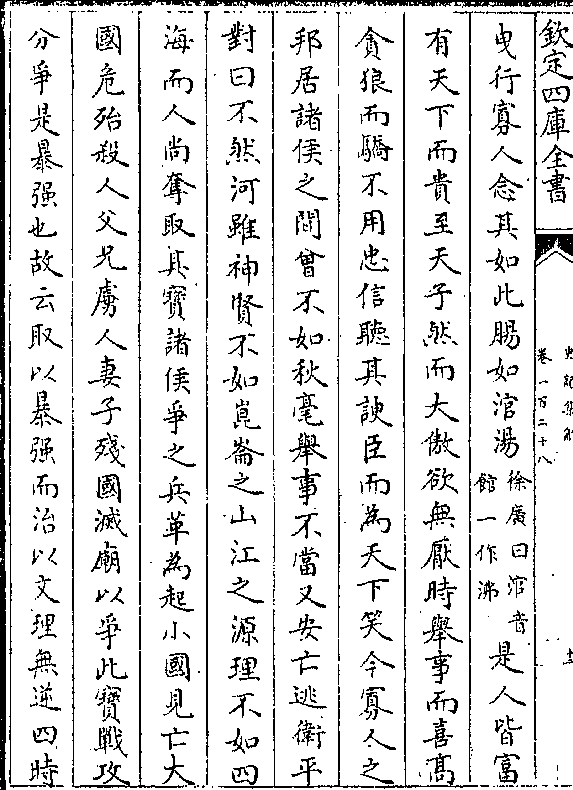 欽定四庫全書
史記集解
卷一百二十八
十三
曵行寡人念其如此腸如涫湯徐廣曰涫音館一作沸是人皆富
有天下而貴至天子然而大傲欲無厭時舉事而喜髙
貪狼而驕不用忠信聽其諛臣而為天下笑今寡人之
邦居諸侯之間曾不如秋毫舉事不當又安亡逃衛平
對曰不然河雖神賢不如崑崙之山江之源理不如四
海而人尚奪取其寶諸侯爭之兵革為起小國見亡大
國危殆殺人父兄虜人妻子殘國滅廟以爭此寶戰攻
分爭是暴强也故云取以暴强而治以文理無逆四時